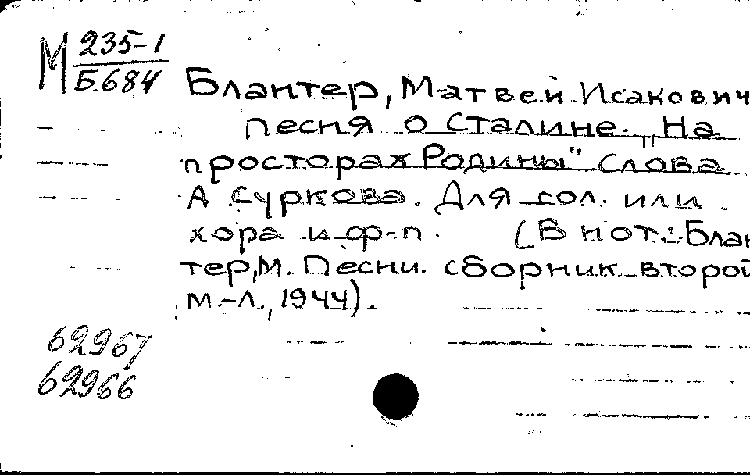 М 235-1
Б.684
Блантер, Матвей Исакович
Песня о Сталине. „На
просторах Родины" слова
А Суркова. Для сол. или
хора и ф-п. (В нот.: Блан
тер, М. Песни. Сборник второй
М-Л., 1944).
62967
62966